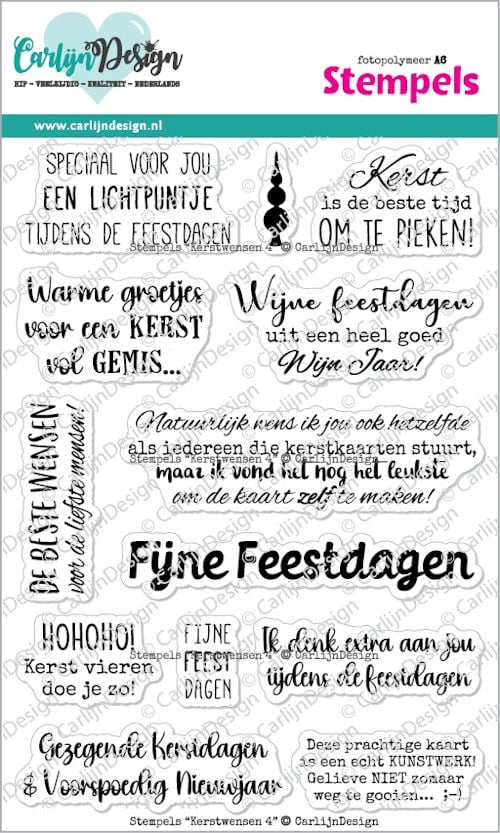 CarlijnDesign
HIP – VEELZIJDIG – KWALITEIT – NEDERLANDS
fotopolymeer A6
Stempels
www.carlijndesign.nl
SPECIAAL VOOR JOU
EEN LICHTPUNTJE
TIJDENS DE FEESTDAGEN
Kerst
is de beste tijd
OM TE PIEKEN!
Stempels "Kerstwensen 4" © CarlijnDesign
Warme groetjes
voor een KERST
vol GEMIS...
Wijne feestdagen
uit een heel goed
Wijn Jaar!
DE BESTE WENSEN
voor de liefste mensen!
Natuurlijk wens ik jou ook hetzelfde
als iedereen die kerstkaarten stuurt,
Stempels "Kerstwensen 4" © CarlijnDesign
maar ik vond het nog het leukste
om de kaart zelf te maken!
Fijne Feestdagen
HOHOHO!
Kerst vieren
doe je zo!
FIJNE
FEEST
DAGEN
Ik denk extra aan jou
tijdens de feestdagen
Stempels "Kerstwensen 4" © CarlijnDesign
Gezegende Kerstdagen
& Voorspoedig Nieuwjaar
Deze prachtige kaart
is een echt KUNSTWERK!
Gelieve NIET zomaar
weg te gooien... ;-)
Stempels "Kerstwensen 4" © CarlijnDesign